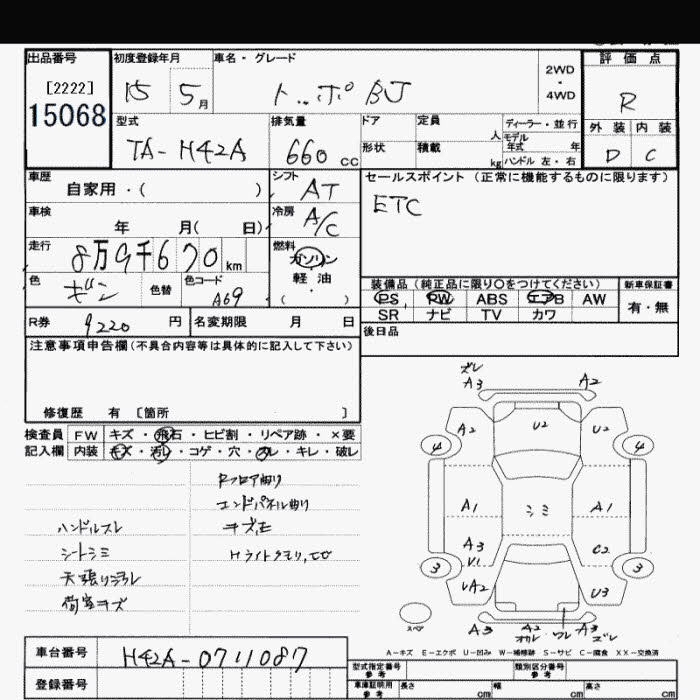 出品番号 初度登録年月 車名・グレード 評価点
[2222]
15068
15 5月 トッポBJ 2WD・4WD R
型式 排気量 ドア 定員 ディーラー・並行 外装 内装
TA-H42A 660 cc 形状 積載 人 モデル年式 年 D C
kg ハンドル 左・右
車歴 自家用・( ) シフト AT セールスポイント(正常に機能するものに限ります)
車検 年 月( 日) 冷房 A/C ETC
走行 8万9千670 km 燃料 ガソリン
軽油
( )
色 ギン 色替 色コード A69
装備品(純正品に限り○をつけてください) 新車保証書
PS RW ABS エアB AW 有・無
SR ナビ TV カワ
R券 9220 円 名変期限 月 日 後日品
注意事項申告欄(不具合内容等は具体的に記入して下さい)
修復歴 有 [箇所 ]
検査員 FW キズ・飛石・ヒビ割・リペア跡・×要
記入欄 内装 キズ・汚レ・コゲ・穴・スレ・キレ・破レ
Rフロア曲り
エンドパネル曲り
ハンドルスレ キズ,E
シートシミ Hライトクモリ,
天張リヨゴレ
荷室キズ
ズレ
A3 A2
A2 U2 U2
4 4
A1 シミ A1
A3 C2
V1
3 3
VA2 U3
スペア A3 A2 ワレ A3 ズレ
A-キズ E-エクボ U-凹み W-補修跡 S-サビ C-腐食 XX-交換済
車台番号 H42A-0711087
登録番号
型式指定番号 参考 類別区分番号 参考
車庫証明用 参考 長さ cm 幅 cm 高さ cm